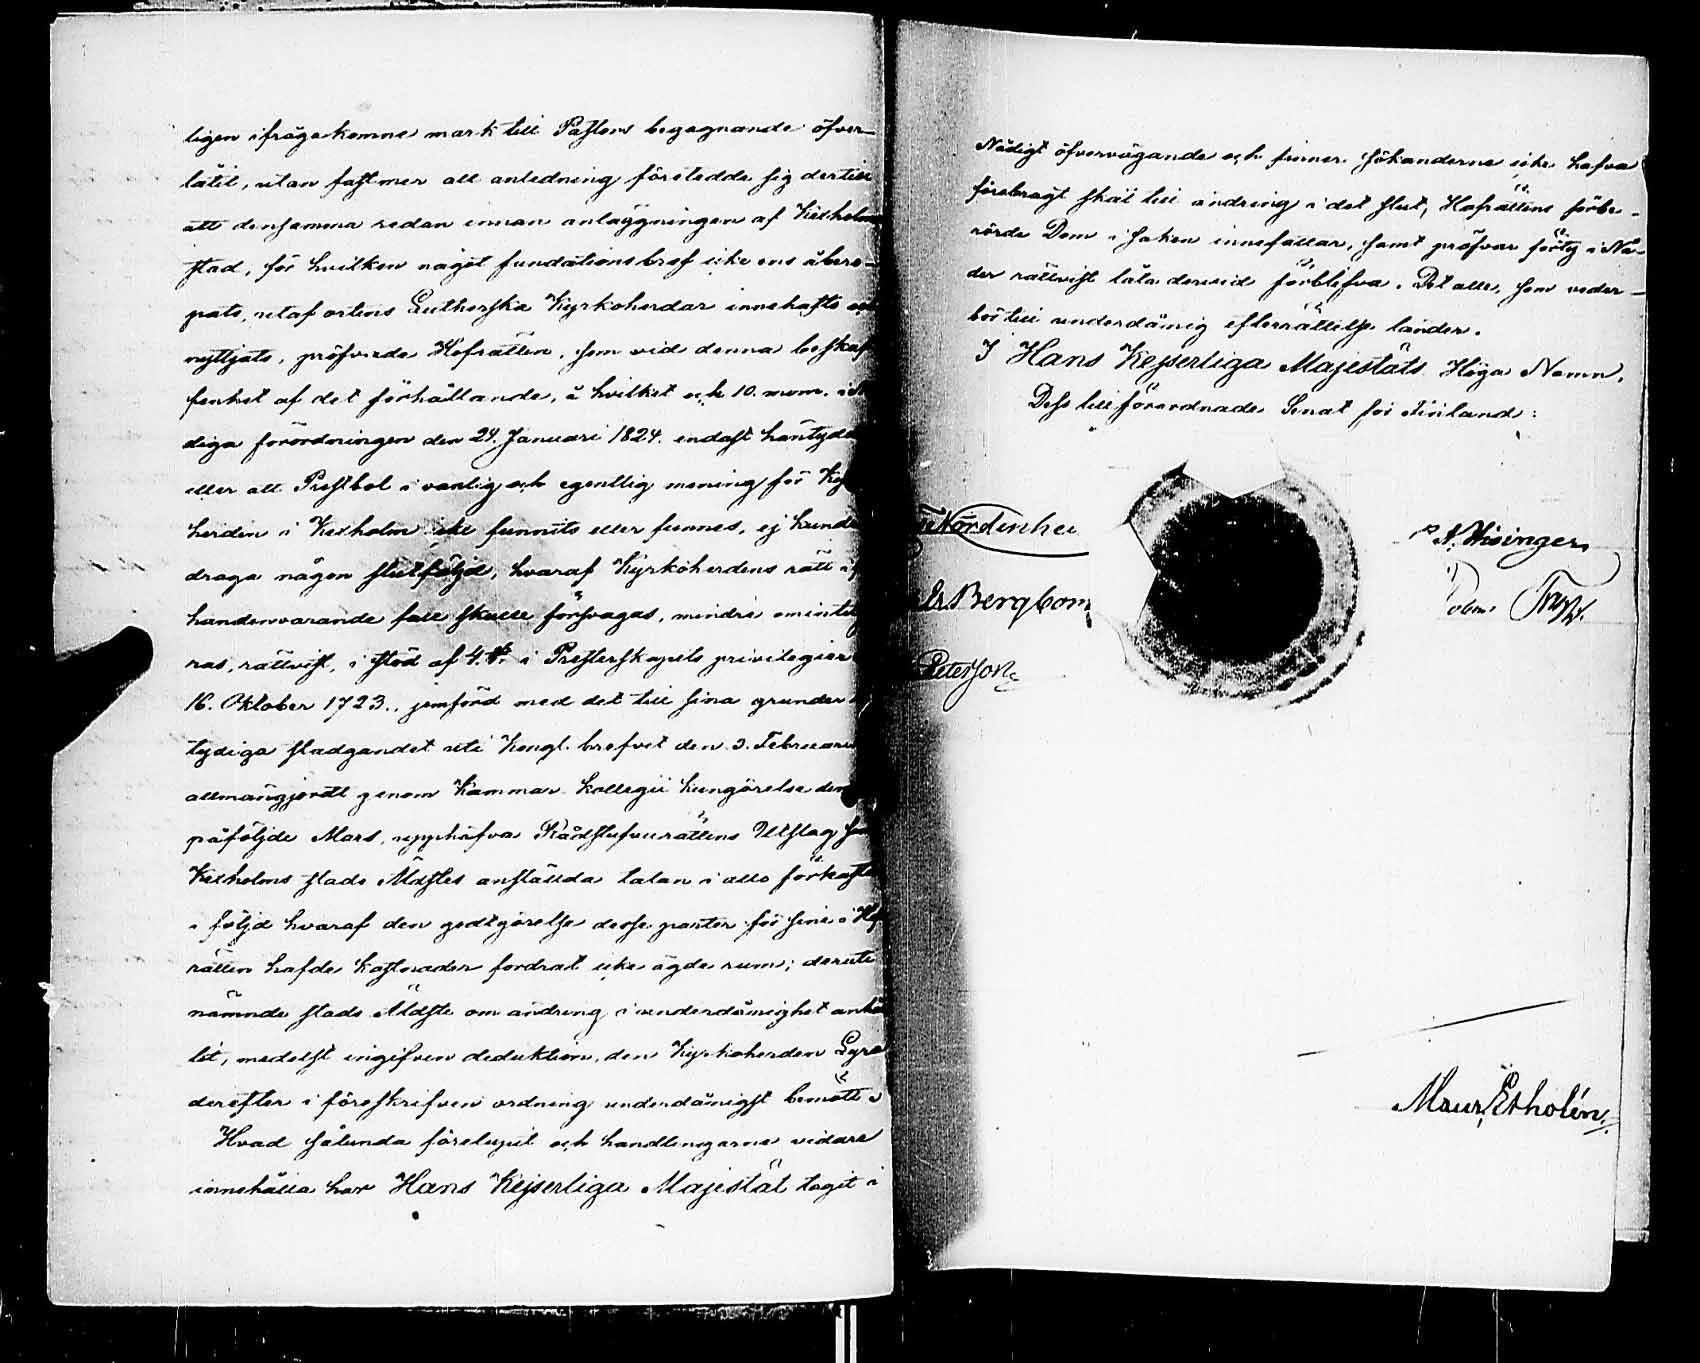 ligen ifrågakomne mark till Pastors begagnande öfver-
låtit, utan fastmer all anledning företedde sig dertill
att densamma redan innan anläggningen af Kexholms
stad, för hvilken något fundationsbref icke ens åbero-
pats, utaf ortens Lutherska Kyrkoherdar innehafts och
nyttjats, pröfvade Hofrätten, som vid denna beskaf-
fenhet af det förhållande, å hvilket och 10. mom. i
diga förordningen den 24. Januari 1824. endast häntyda
eller att Prestbol i vanlig och egentlig mening för Ky
herden i Kexholm icke funnits eller funnes, ej kunde
draga någon slutföljd, hvaraf Kyrkoherdens rätt i f
handenvarande fall skulle försvagas, mindre omintet
ras, rättvist, i stöd af 4. §. i Presterskapets privilegier
16. Oktober 1723., jemförd med det till sina grunder
tydiga stadgandet uti Kongl. brefvet den 3. Februari
allmängjordt genom Kammar Kollegii Kungörelse den
påföljde Mars, upphäfva Rådstufvurättens Utslag sam
Kexholms stads Äldstes anställda talan i allo förkasta
i följd hvaraf den godtgörelse desse parter för sine i Hof
rätten hafde kostnader fordrat icke ägde rum; deruti
nämnde stads Äldste om ändring i underdånighet anhål
lit, medelst ingifven deduktion, den Kyrkoherden
derefter i föreskrifven ordning underdånigst bemött.
Hvad sålunda förelupit och handlingarne vidare
innehålla har Hans Kejserliga Majestät tagit i
Nådigt öfvervägande och finner sökanderne icke hafva
förebragt skäl till ändring i det slut, Hofrättens förbe-
rörde Dom i saken innefattar, samt pröfvar förty i Nå-
der rättvist låta dervid förblifva. Det alle, som veder-
bör till underdånig efterrättelse länder.
I Hans Kejserliga Majestäts Höga Namn.
Dess tillförordnade Senat för Finland:
Nordenhei
Bergbom
A. Hisinger
Peterson
Maur. Esholén